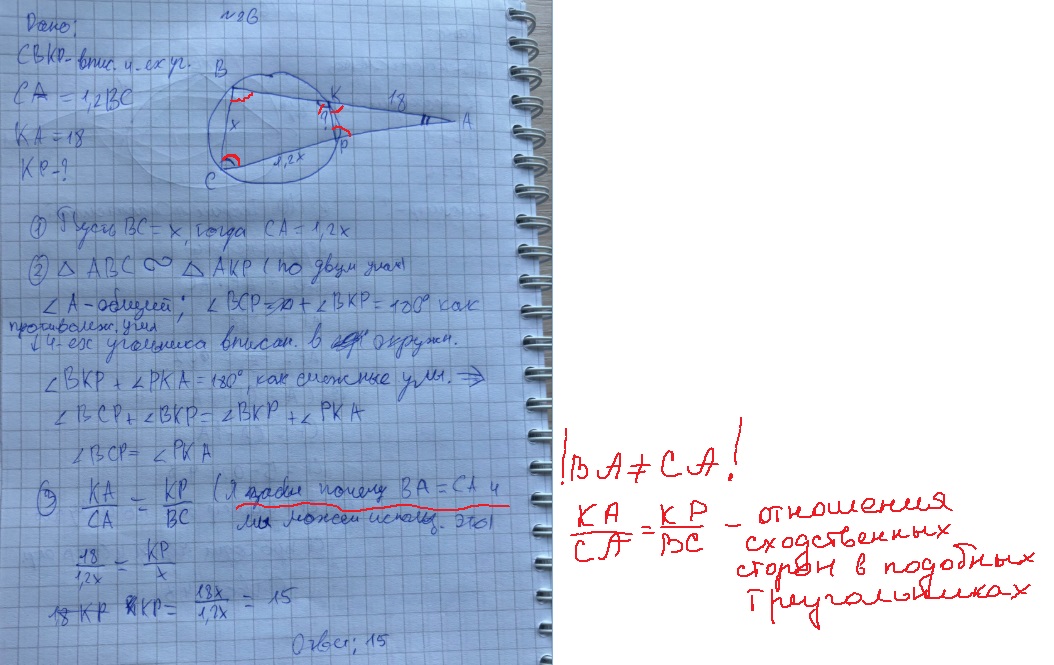 №26
Дано:
CBKP - впис. 4-ех уг.
CA = 1,2BC
KA = 18
KP - ?
B
K
18
A
x
?
P
1,2x
C
① Пусть BC = x, тогда CA = 1,2x
② △ ABC ∞ △ AKP (по двум углам)
∠A - общий; ∠BCP + ∠BKP = 180° как
противолеж. углы
4-ех угольника вписан. в окружн.
∠BKP + ∠PKA = 180°, как смежные углы. ⇒
∠BCP + ∠BKP = ∠BKP + ∠PKA
∠BCP = ∠PKA
③ KA/CA = KP/BC (Я забыл почему BA = CA и
мы можем использ. это)
18/1,2x = KP/x
18KP KP = 18x/1,2x = 15
Ответ: 15
! BA ≠ CA !
KA/CA = KP/BC - отношения
сходственных
сторон в подобных
треугольниках